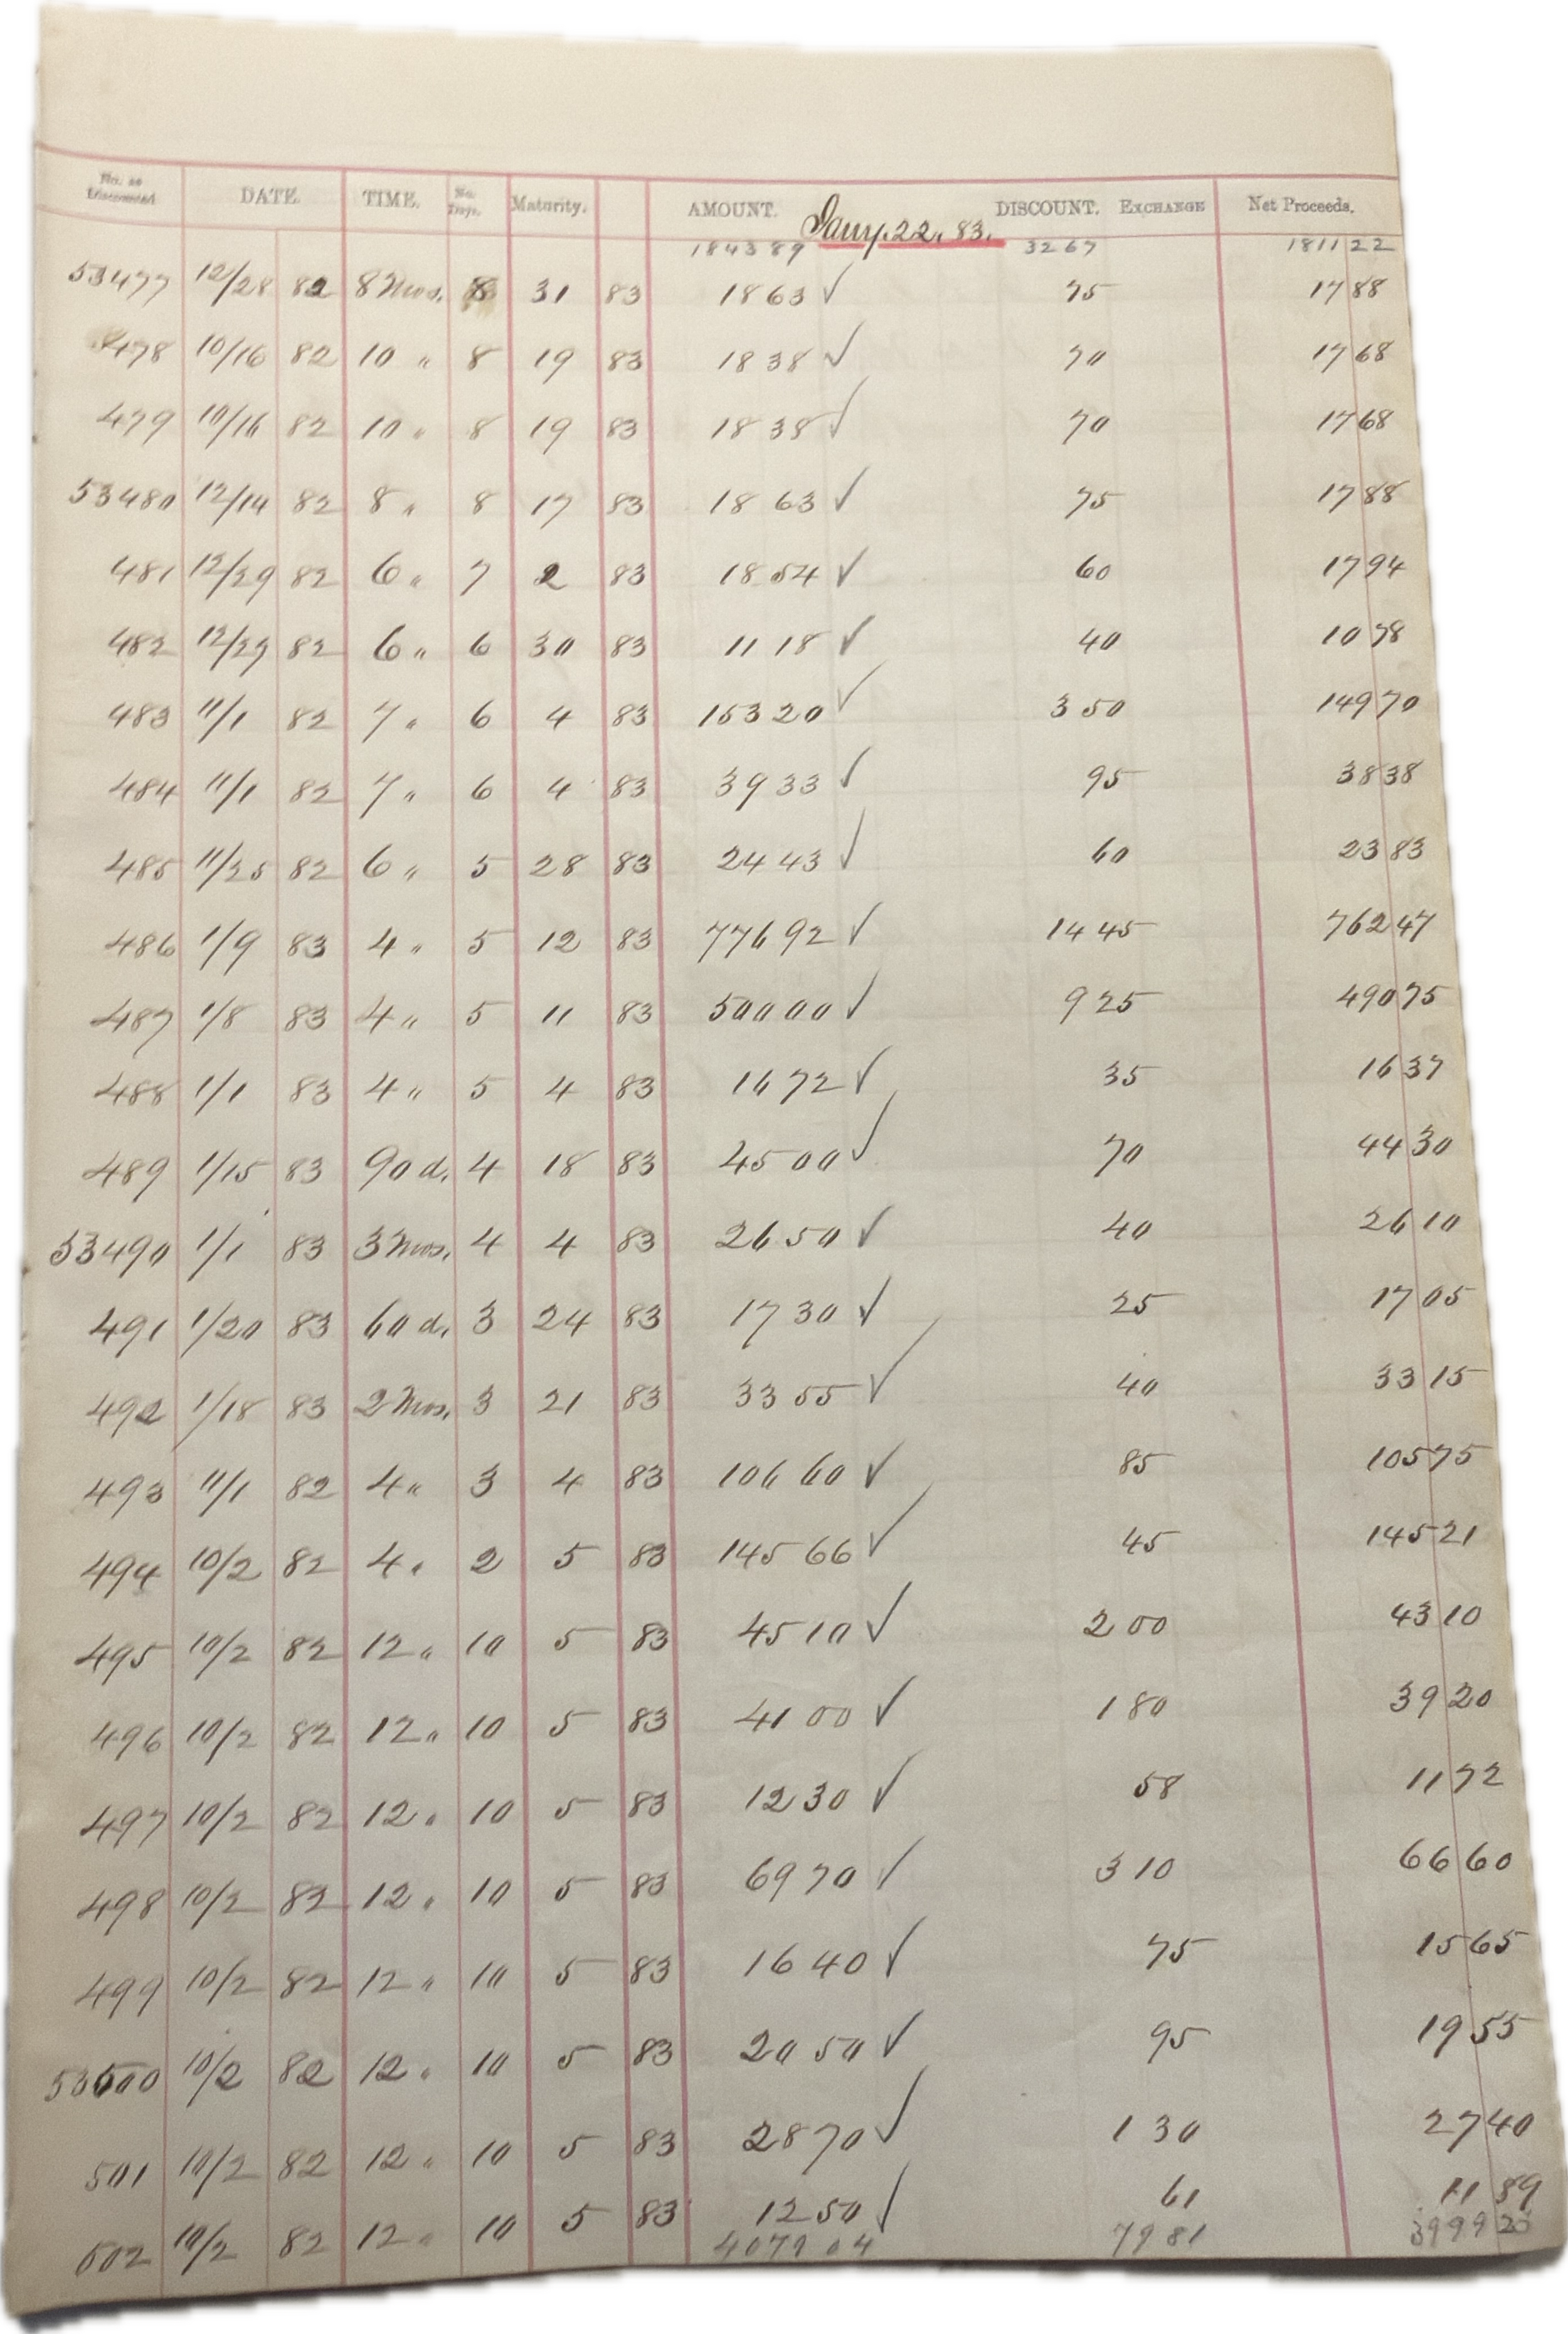 No. as Discounted DATE. TIME. No. Days. Maturity. AMOUNT. DISCOUNT. EXCHANGE Net Proceeds.
Jany. 22. 83.
1843 89 32 67 1811 22
53477 12/28 82 8 Mos. 8 31 83 18 63 ✓ 75 17 88
478 10/16 82 10 " 8 19 83 18 38 ✓ 70 17 68
479 10/16 82 10 " 8 19 83 18 38 ✓ 70 17 68
53480 12/14 82 8 " 8 17 83 18 63 ✓ 75 17 88
481 12/29 82 6 " 7 2 83 18 54 ✓ 60 17 94
482 12/27 82 6 " 6 30 83 11 18 ✓ 40 10 78
483 11/1 82 7 " 6 4 83 153 20 ✓ 3 50 149 70
484 11/1 82 7 " 6 4 83 39 33 ✓ 95 38 38
485 11/25 82 6 " 5 28 83 24 43 ✓ 60 23 83
486 1/9 83 4 " 5 12 83 776 92 ✓ 14 45 762 47
487 1/8 83 4 " 5 11 83 500 00 ✓ 9 25 490 75
488 1/1 83 4 " 5 4 83 16 72 ✓ 35 16 37
489 1/15 83 90 d. 4 18 83 45 00 ✓ 70 44 30
53490 1/1 83 3 Mos. 4 4 83 26 50 ✓ 40 26 10
491 1/20 83 60 d. 3 24 83 17 30 ✓ 25 17 05
492 1/18 83 2 Mos. 3 21 83 33 55 ✓ 40 33 15
493 11/1 82 4 " 3 4 83 106 60 ✓ 85 105 75
494 10/2 82 4 " 2 5 83 145 66 ✓ 45 145 21
495 10/2 82 12 " 10 5 83 45 10 ✓ 2 00 43 10
496 10/2 82 12 " 10 5 83 41 00 ✓ 1 80 39 20
497 10/2 82 12 " 10 5 83 12 30 ✓ 58 11 72
498 10/2 82 12 " 10 5 83 69 70 ✓ 3 10 66 60
499 10/2 82 12 " 10 5 83 16 40 ✓ 75 15 65
53500 10/2 82 12 " 10 5 83 20 50 ✓ 95 19 55
501 10/2 82 12 " 10 5 83 28 70 ✓ 1 30 27 40
502 10/2 82 12 " 10 5 83 12 50 ✓ 61 11 89
4079 04 79 81 3999 23